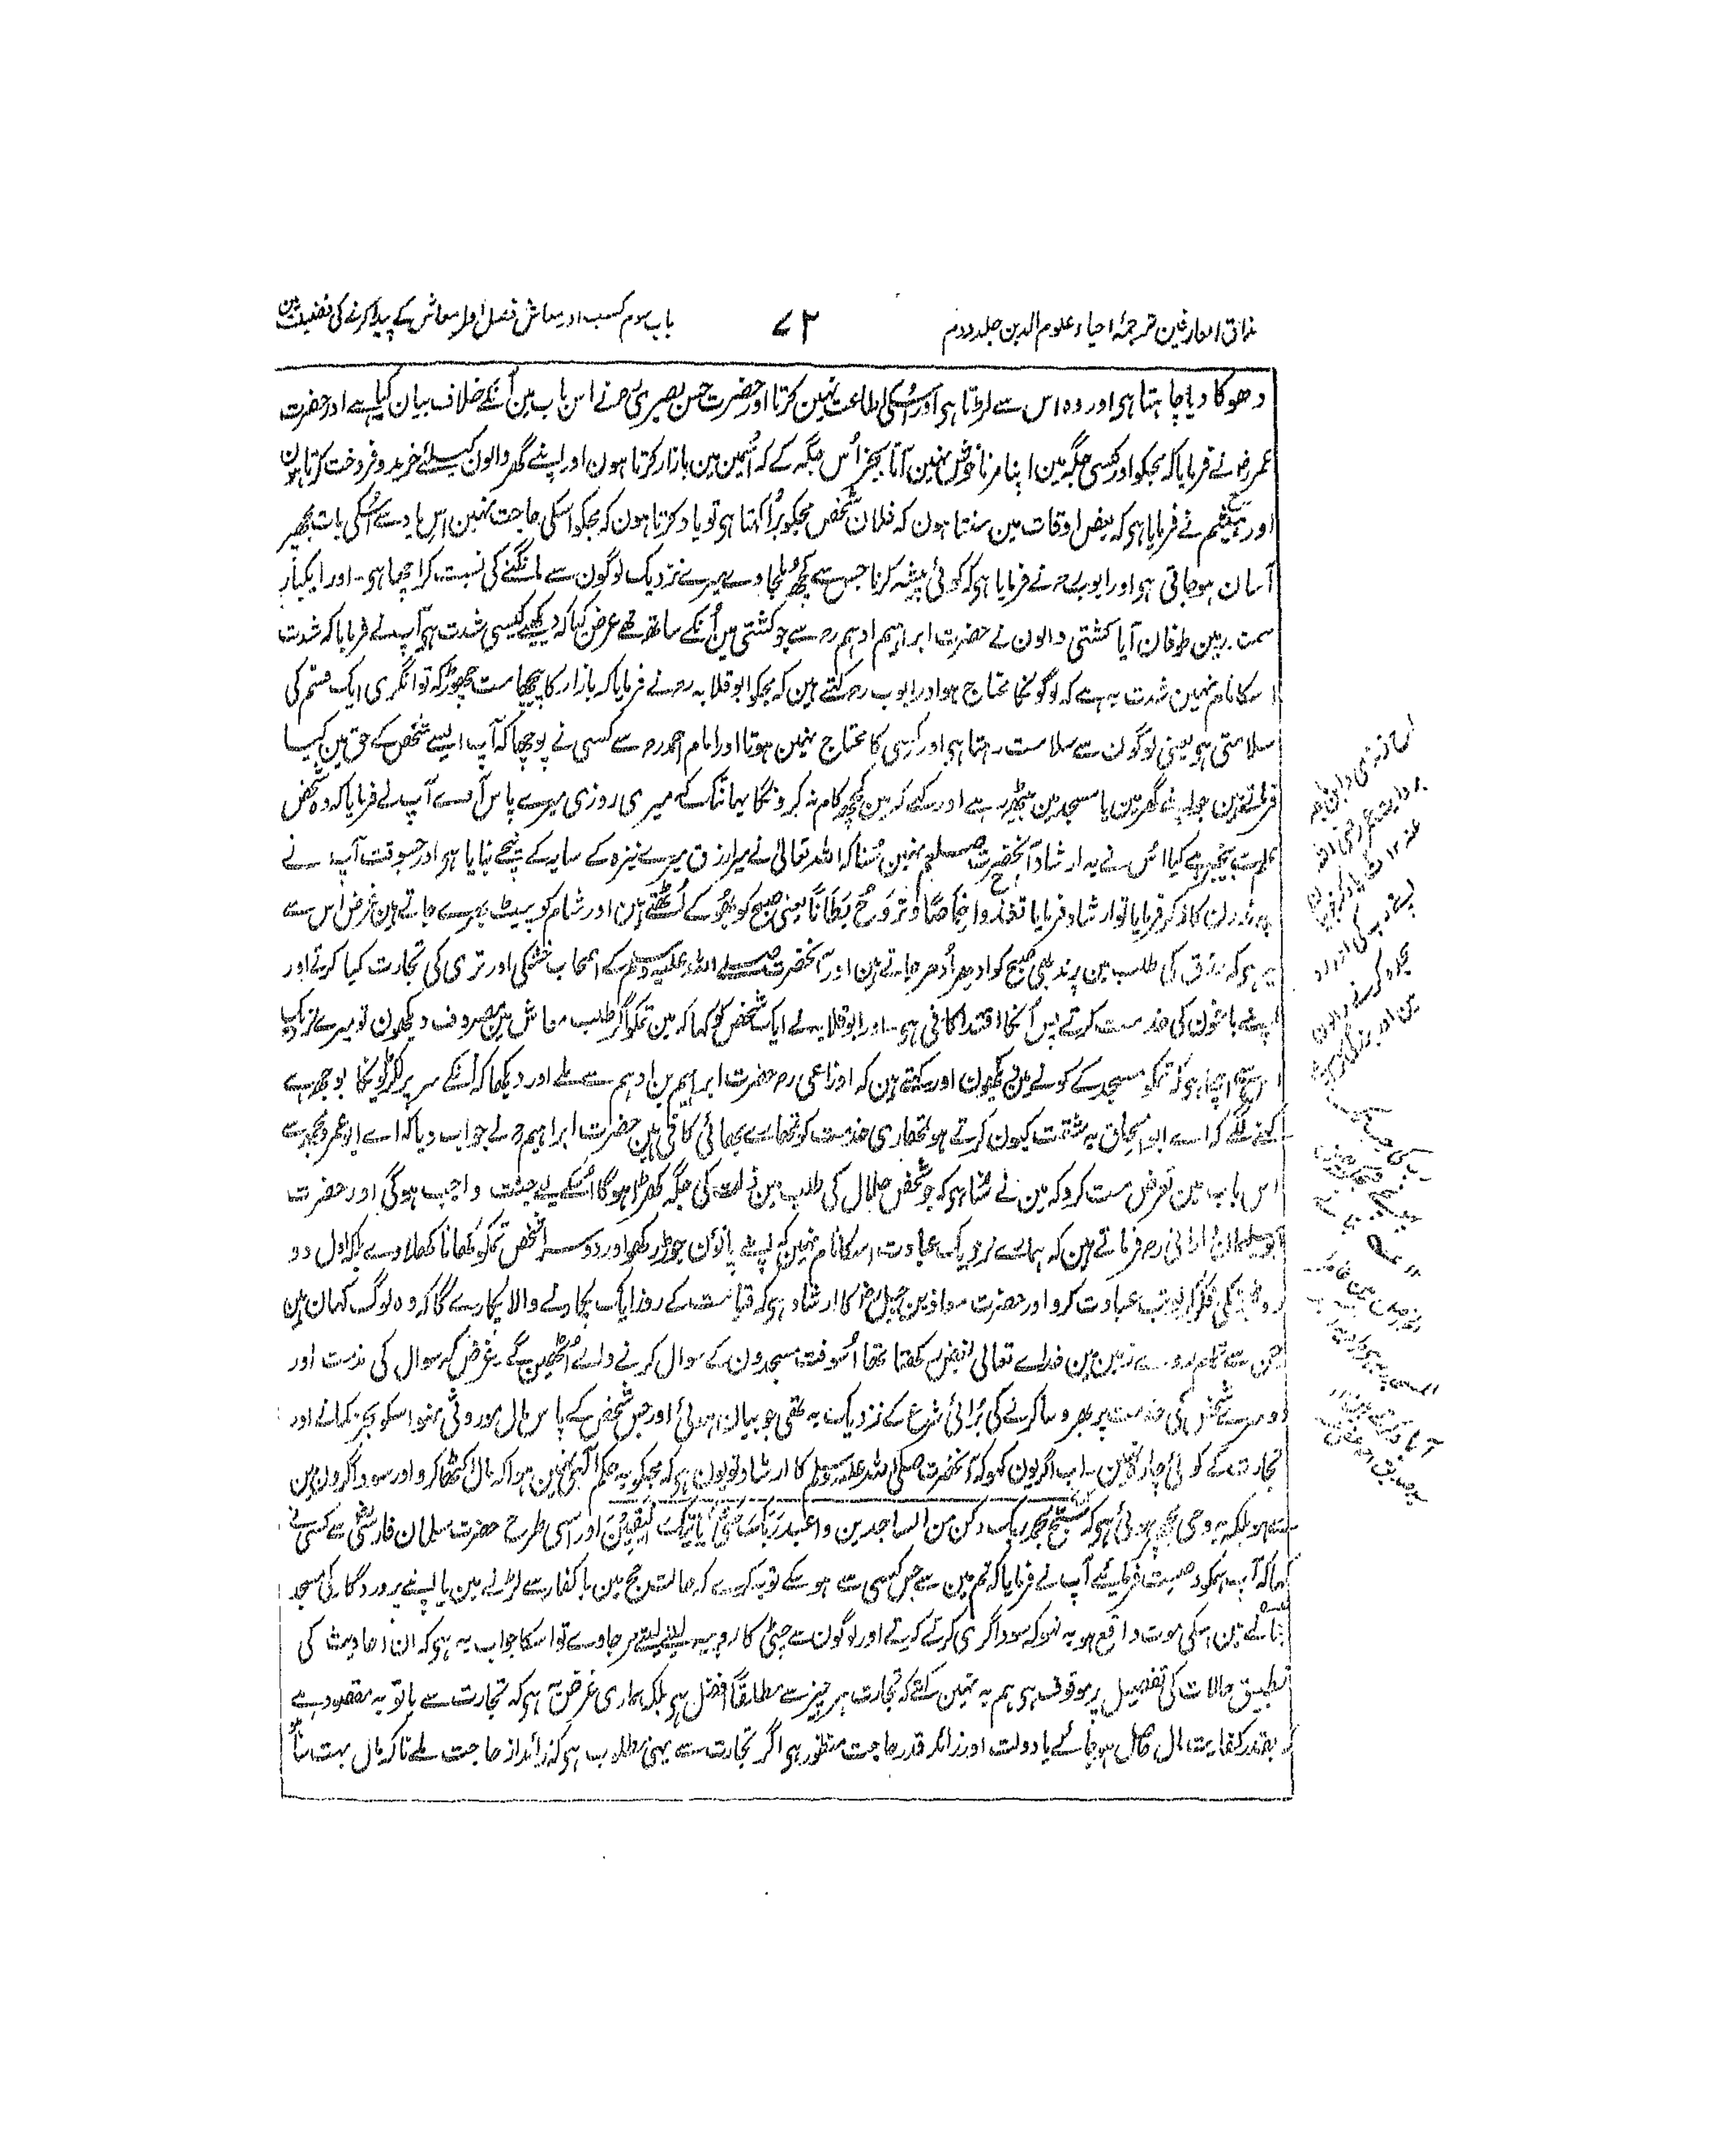 مذاق العارفین ترجمۂ احیاء علوم الدین جلد دوم
۷۲
باب سوم کسب اور معاش فصل اول معاش کے پیدا کرنے کی فضیلت مین
دھوکا دیا چاہتا ہی اور وہ اس سے لڑتا ہی اور اُسکی اطاعت نہین کرتا اور حضرت حسن بصری رح نے اس باب مین اُنکے خلاف بیان کیا ہے اور حضرت
عمر رض نے فرمایا کہ مجکو اور کسی جگہ مین اپنا مرنا خوش نہین آتا بجز اُس جگہ کے کہ اُسمین مین بازار کرتا ہون اور اپنے گھر والون کیلئے خرید و فروخت کرتا ہون
اور ہیثم نے فرمایا ہی کہ بعض اوقات مین سنتا ہون کہ فلان شخص مجکو بُرا کہتا ہی تو یاد کرتا ہون کہ مجکو اسکی حاجت نہین اس یاد سے اُسکی بات مجھپر
آسان ہو جاتی ہی اور ایوب رح نے فرمایا ہی کہ کوئی پیشہ کرنا جس سے کچھ ملجاوے میرے نزدیک لوگون سے مانگنے کی نسبت کر اچھا ہی۔ اور ایکبار
سمندر مین طوفان آیا کشتی والون نے حضرت ابراہیم ادہم رح سے جو کشتی مین اُنکے ساتھ تھے عرض کیا کہ دیکھیے کیسی شدت ہی آپ نے فرمایا کہ شدت
اسکا نام نہین شدت یہ ہے کہ لوگونکا محتاج ہو اور ایوب رح کہتے ہین کہ مجکو ابو قلابہ رح نے فرمایا کہ بازار کا پیچھا مت چھوڑ کہ توانگری ایک قسم کی
سلامتی ہی یعنی لوگون سے سلامت رہتا ہی اور کسی کا محتاج نہین ہوتا اور امام احمد رح سے کسی نے پوچھا کہ آپ ایسے شخص کے حق مین کیا
فرماتے ہین جو اپنے گھر مین یا مسجد مین بیٹھ رہے اور کہے کہ مین کچھ کام نہ کرونگا یہانتک کہ میری روزی میرے پاس آوے آپ نے فرمایا کہ وہ شخص
علم سے بیخبر ہے کیا اُس نے یہ ارشاد آنحضرت صلعم نہین سُنا کہ اللہ تعالیٰ نے میرا رزق میرے نیزہ کے سایہ کے نیچے بنایا ہی اور جسوقت آپ نے
پرندون کا ذکر فرمایا تو ارشاد فرمایا تغدوا خِماصًا وَتَرُوحُ بِطَانًا یعنی صبح کو بھوکے اُٹھتے ہین اور شام کو پیٹ بھرے جاتے ہین غرض اس سے
یہ ہی کہ رزق کی طلب مین پرند بھی صبح کو ادھر اُدھر جاتے ہین اور آنحضرت صلے اللہ علیہ وسلم کے اصحاب خشکی اور تری کی تجارت کیا کرتے اور
اپنے باغون کی خدمت کرتے پس اُنکا اقتدا کافی ہی۔ اور ابو قلابہ نے ایک شخص کو کہا کہ مین تمکو اگر طلب معاش مین مصروف دیکھون تو میرے نزدیک
اس سے اچھا ہی کہ تمکو مسجد کے کونے مین دیکھون اور کہتے ہین کہ اوزاعی رح حضرت ابراہیم بن ادہم سے ملے اور دیکھا کہ اُنکے سر پر لکڑیونکا بوجھ ہے
کہنے لگے کہ اے ابو اسحاق یہ مشقت کیون کرتے ہو تمھاری خدمت کو تمھارے بھائی کافی ہین حضرت ابراہیم رح نے جواب دیا کہ اے ابو عمرو مجھسے
اس باب مین تعرض مت کرو کہ مین نے سُنا ہی کہ جو شخص حلال کی طلب مین ذلت کی جگہ کھڑا ہو گا اُسکے لیے جنت واجب ہوگی اور حضرت
ابو سلیمان دارانی رح فرماتے ہین کہ ہمارے نزدیک عبادت اسکا نام نہین کہ اپنے پانوُن جوڑ رکھو اور دوسرا شخص تمکو کھانا کھلاوے بلکہ اول دو
روٹیونکی فکر کر لو تب عبادت کرو اور حضرت معاذ بن جبل رض کا ارشاد ہی کہ قیامت کے روز ایک پکارنے والا پکارے گا کہ وہ لوگ کہان ہین
جن سے تمام روے زمین مین خداے تعالیٰ بغض رکھتا تھا اُسوقت مسجدون کے سوال کرنے والے اُٹھین گے غرض کہ سوال کی مذمت اور
دوسرے شخص کی خدمت پر بھروسا کرنے کی بُرائی شرع کے نزدیک یہ تھی جو بیان ہوئی اور جس شخص کے پاس مال موروثی نہو اسکو بجز کمانے اور
تجارت کے کوئی چارہ نہین۔ اب اگر یون کہو کہ آنحضرت صلی اللہ علیہ وسلم کا ارشاد تو یون ہی کہ مجکو یہ حکم الٰہی نہین ہوا کہ مال اکٹھا کرو اور سوداگرون مین
سے ہو بلکہ یہ وحی مجھپر ہوئی ہی کہ فسبّح بحمد ربک وکن من الساجدین واعبد ربک حتّی یاتیک الیقین اور اسی طرح حضرت سلمان فارسی رض سے کسی نے
کہا کہ آپ ہمکو وصیت فرمایئے آپ نے فرمایا کہ تم مین سے جس کسی سے ہو سکے تو یہ کرے کہ حالت حج مین یا کفار سے لڑنے مین یا اپنے پروردگار کی مسجد
بنانے مین اسکی موت واقع ہو یہ نہو کہ سوداگری کرتے کرتے اور لوگون سے چٹی کا روپیہ لیتے لیتے مر جاوے تو اسکا جواب یہ ہی کہ ان احادیث کی
تطبیق حالات کی تفصیل پر موقوف ہی ہم یہ نہین کہتے کہ تجارت ہر چیز سے مطلقاً افضل ہی بلکہ ہماری غرض یہ ہی کہ تجارت سے یا تو یہ مقصود ہے
کہ بقدر کفایت مال حاصل ہو جائے یا دولت اور زائد قدر حاجت منظور ہی اگر تجارت سے یہی مطلوب ہی کہ زائد از حاجت ملے تاکہ مال بہت سا